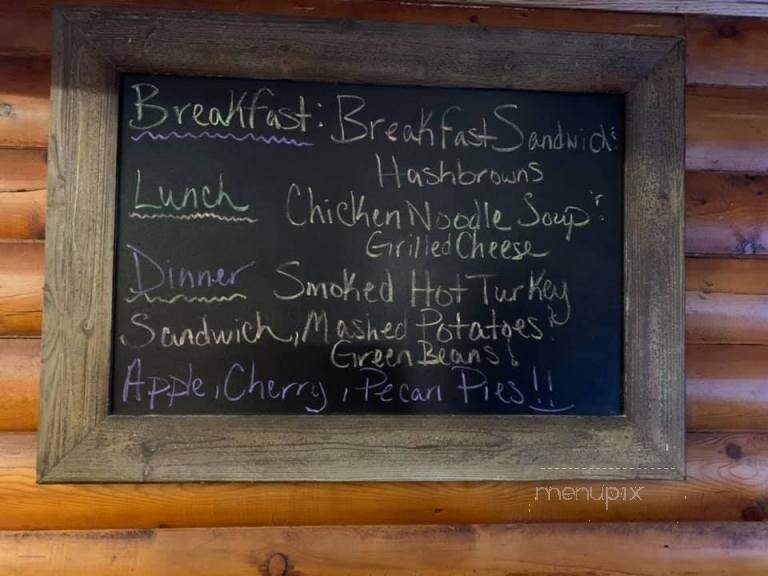 Breakfast: Breakfast Sandwich &
Hashbrowns
Lunch Chicken Noodle Soup &
Grilled Cheese
Dinner Smoked Hot Turkey
Sandwich, Mashed Potatoes &
Green Beans!
Apple, Cherry, Pecan Pies!!
menupix